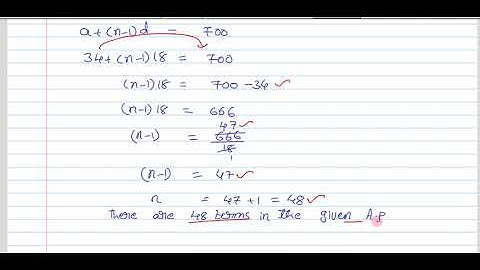 a+(n-1)d = 700
34+(n-1)18 = 700
(n-1)18 = 700-34 ✓
(n-1)18 = 666
47 ✓
(n-1) = 666
18
1
(n-1) = 47 ✓
n = 47+1 = 48 ✓
There are 48 terms in the given A.P